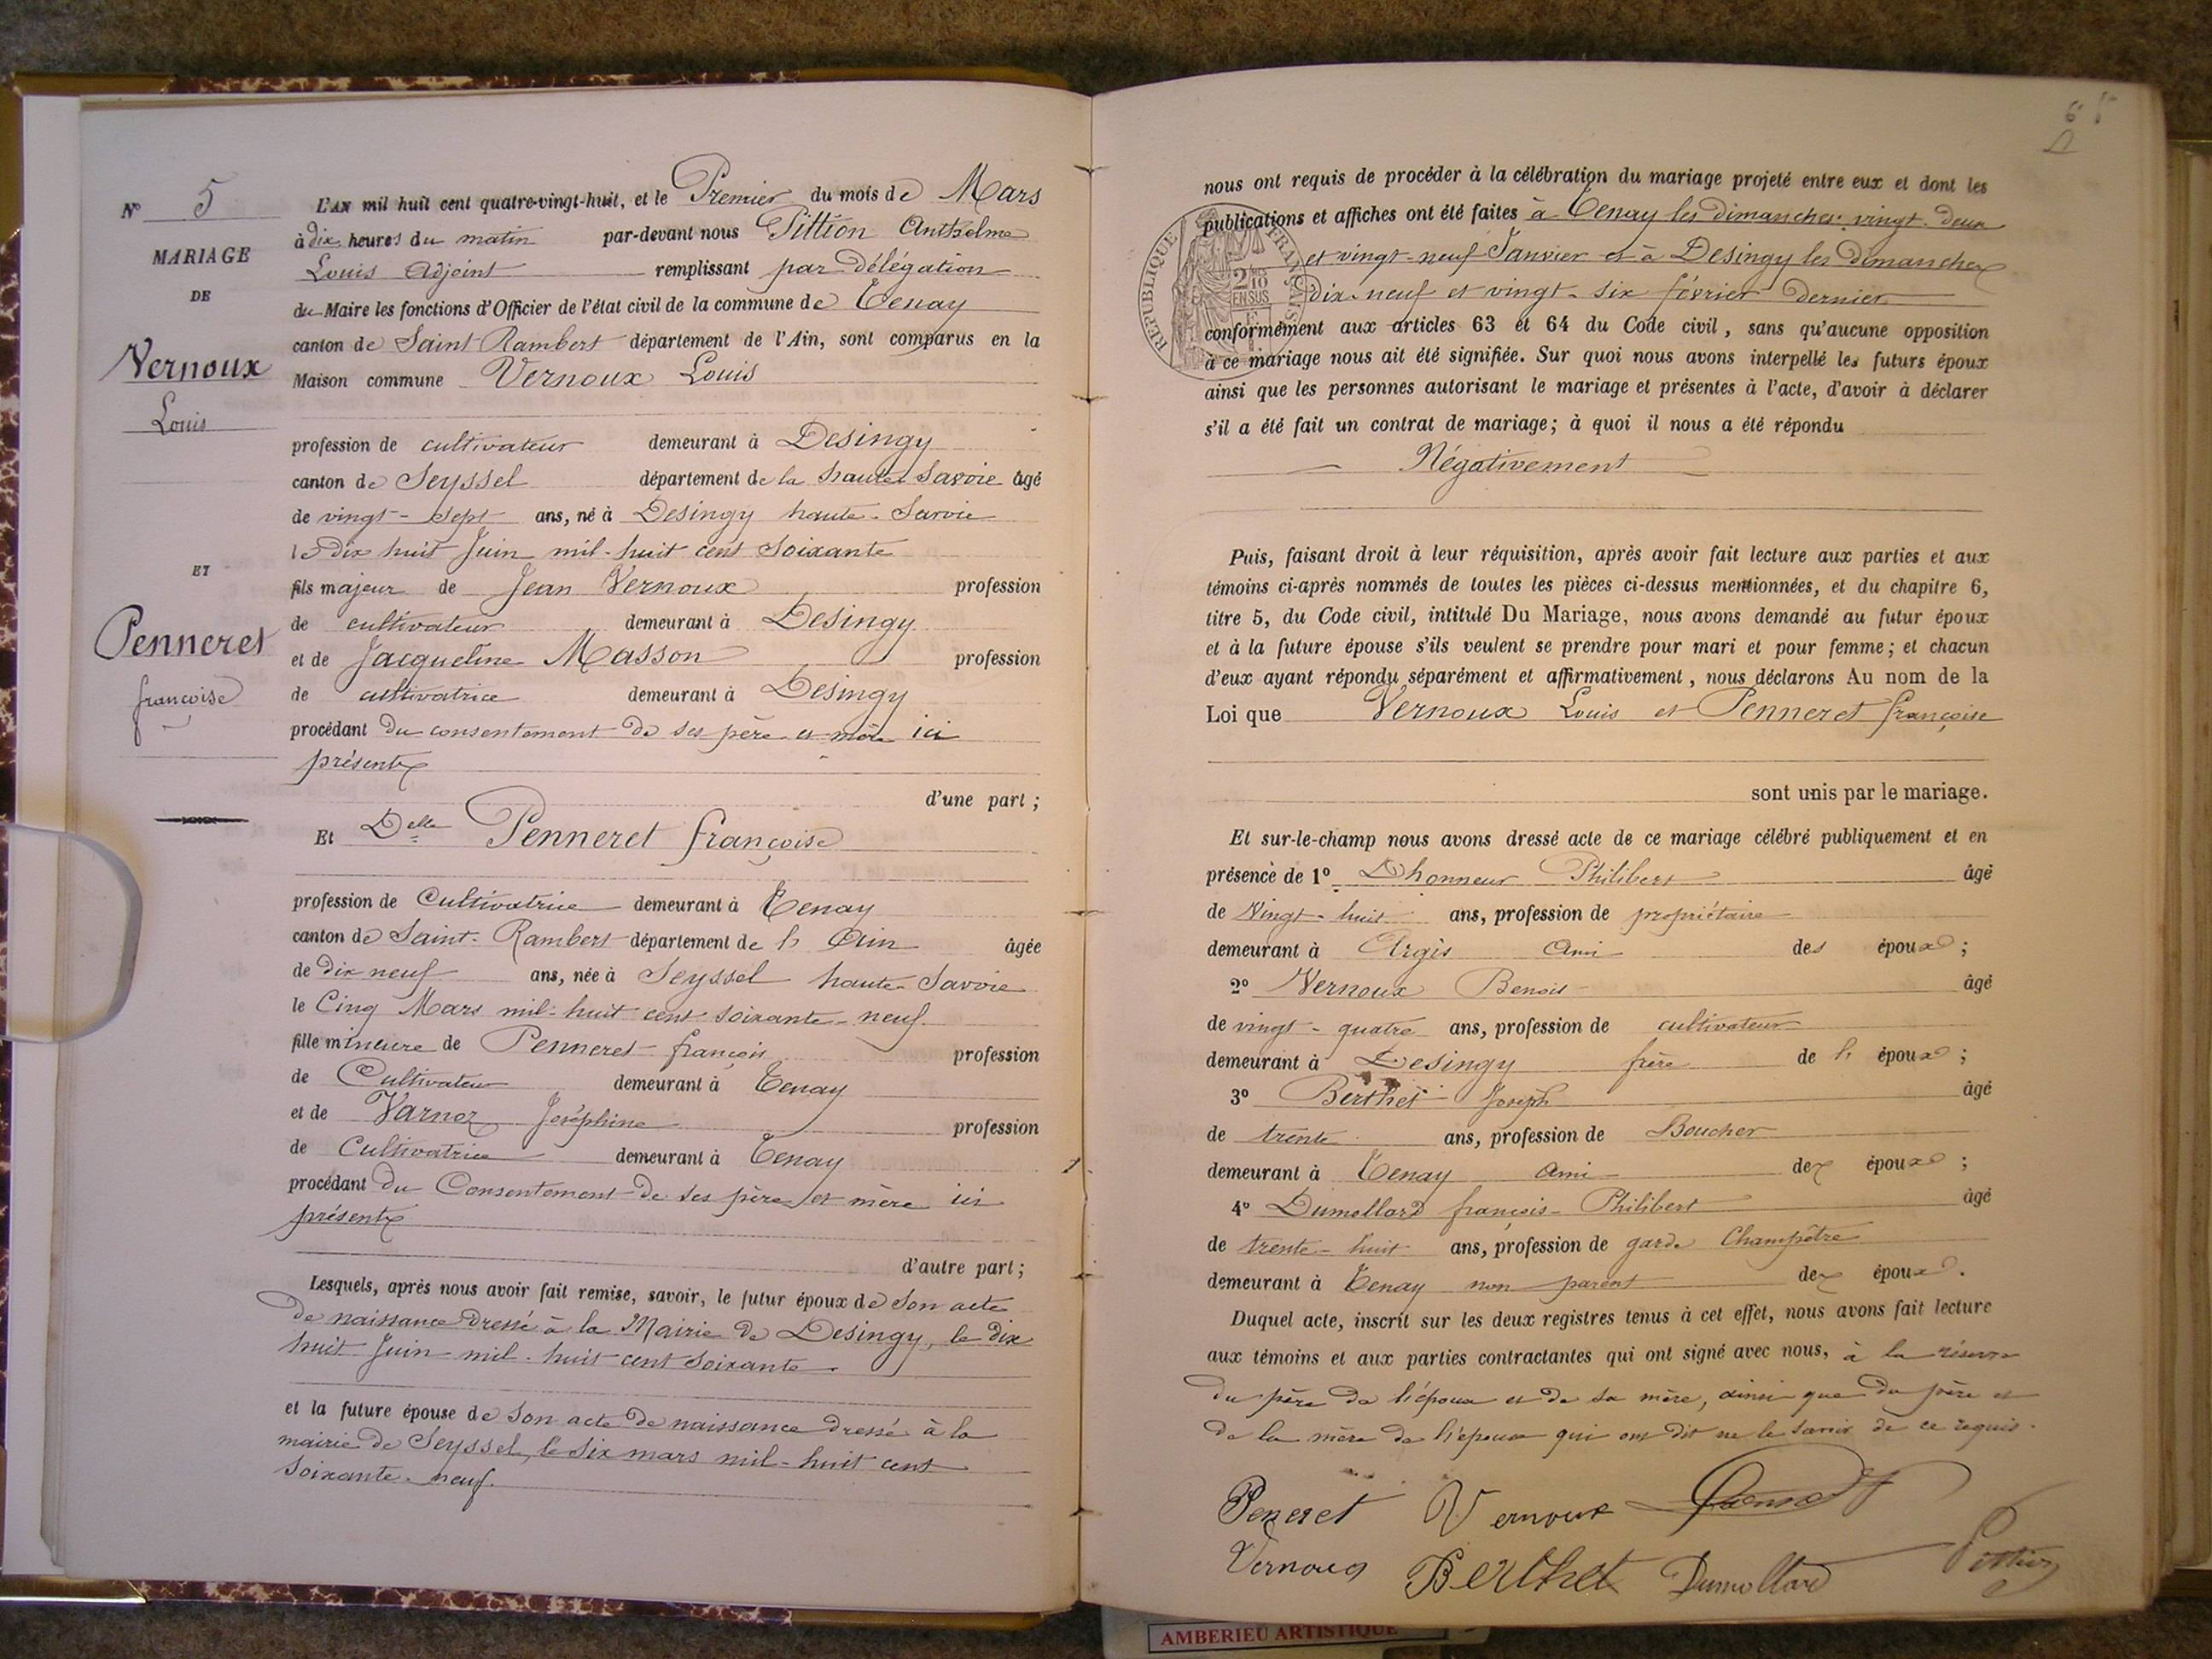 N° 5
MARIAGE
DE
Vernoux
Louis
ET
Penneret
françoise
L'AN mil huit cent quatre-vingt-huit, et le Premier du mois de Mars
à dix heures du matin par-devant nous Sittion Anthelme
Louis Adjoint remplissant par délégation
du Maire les fonctions d'Officier de l'état civil de la commune de Tenay
canton de Saint Rambert département de l'Ain, sont comparus en la
Maison commune Vernoux Louis
profession de cultivateur demeurant à Desingy
canton de Seyssel département de la haute Savoie âgé
de vingt-sept ans, né à Desingy haute-Savoie
le Dix huit Juin mil-huit cent soixante
fils majeur de Jean Vernoux profession
de cultivateur demeurant à Desingy
et de Jacqueline Masson profession
de cultivatrice demeurant à Desingy
procédant du consentement de ses père et mère ici
présents
d'une part ;
Et Delle Penneret françoise
profession de Cultivatrice demeurant à Tenay
canton de Saint-Rambert département de l'Ain âgée
de dix neuf ans, née à Seyssel haute-Savoie
le Cinq Mars mil-huit cent soixante-neuf
fille mineure de Penneret françois profession
de Cultivateur demeurant à Tenay
et de Varnoz Joséphine profession
de Cultivatrice demeurant à Tenay
procédant du Consentement de ses père et mère ici
présents
d'autre part ;
Lesquels, après nous avoir fait remise, savoir, le futur époux de son acte
de naissance dressé à la Mairie de Desingy, le dix
huit Juin mil-huit cent soixante.
et la future épouse de son acte de naissance dressé à la
mairie de Seyssel, le six mars mil-huit cent
soixante-neuf.
nous ont requis de procéder à la célébration du mariage projeté entre eux et dont les
publications et affiches ont été faites à Tenay les dimanches vingt-deux
et vingt-neuf Janvier et à Desingy les dimanches
dix-neuf et vingt-six février dernier
RÉPUBLIQUE FRANÇAISE
2/10 EN SUS
conformément aux articles 63 et 64 du Code civil, sans qu'aucune opposition
à ce mariage nous ait été signifiée. Sur quoi nous avons interpellé les futurs époux
ainsi que les personnes autorisant le mariage et présentes à l'acte, d'avoir à déclarer
s'il a été fait un contrat de mariage; à quoi il nous a été répondu
Négativement
Puis, faisant droit à leur réquisition, après avoir fait lecture aux parties et aux
témoins ci-après nommés de toutes les pièces ci-dessus mentionnées, et du chapitre 6,
titre 5, du Code civil, intitulé Du Mariage, nous avons demandé au futur époux
et à la future épouse s'ils veulent se prendre pour mari et pour femme; et chacun
d'eux ayant répondu séparément et affirmativement, nous déclarons Au nom de la
Loi que Vernoux Louis et Penneret françoise
sont unis par le mariage.
Et sur-le-champ nous avons dressé acte de ce mariage célébré publiquement et en
présence de 1° Dhonneur Philibert âgé
de Vingt-huit ans, profession de propriétaire
demeurant à Argis Ami des époux ;
2° Vernoux Benoit âgé
de vingt-quatre ans, profession de cultivateur
demeurant à Desingy frère de l'époux ;
3° Berthet Joseph âgé
de trente ans, profession de Boucher
demeurant à Tenay Ami des époux ;
4° Dumollard françois-Philibert âgé
de trente-huit ans, profession de garde Champêtre
demeurant à Tenay non parent des époux.
Duquel acte, inscrit sur les deux registres tenus à cet effet, nous avons fait lecture
aux témoins et aux parties contractantes qui ont signé avec nous, à la réserve
du père de l'époux et de sa mère, ainsi que du père et
de la mère de l'épouse qui ont dit ne le savoir de ce requis.
Peneret Vernoux
Vernoux Berthet Dumollard
AMBERIEU ARTISTIQUE